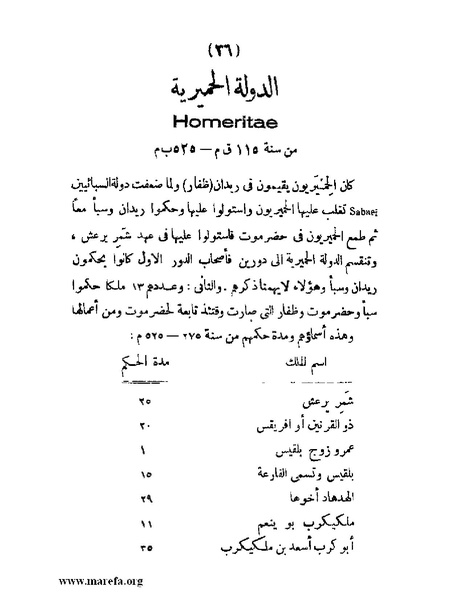 (٣٦)
الدولة الحميرية
Homeritae
من سنة ١١٥ ق م — ٥٢٥ ب م
كان الحِمْيَريون يقيمون فى ريدان (ظفار) ولما ضعفت دولة السبائيين
Sabaei تغلب عليها الحميريون واستولوا عليها وحكموا ريدان وسبأ معاً
ثم طمع الحميريون فى حضرموت فاستولوا عليها فى عهد شمّر يرعش ،
وتنقسم الدولة الحميرية الى دورين فأصحاب الدور الاول كانوا يحكمون
ريدان وسبأ وهؤلاء لا يهمنا ذكرهم . والثانى : وعددهم ١٣ ملكا حكموا
سبأ وحضرموت وظفار التى صارت وقتئذ تابعة لحضرموت ومن أعمالها
وهذه أسماؤهم ومدة حكمهم من سنة ٢٧٥ — ٥٢٥ م :
اسم الملك مدة الحكم
شمّر يرعش ٢٥
ذو القرنين أو افريقس ٢٠
عمرو زوج بلقيس ١
بلقيس وتسمى الفارعة ١٥
الهدهاد أخوها ٢٩
ملكيكرب بو ينعم ١١
أبو كرب أسعد بن ملكيكرب ٣٥
www.marefa.org